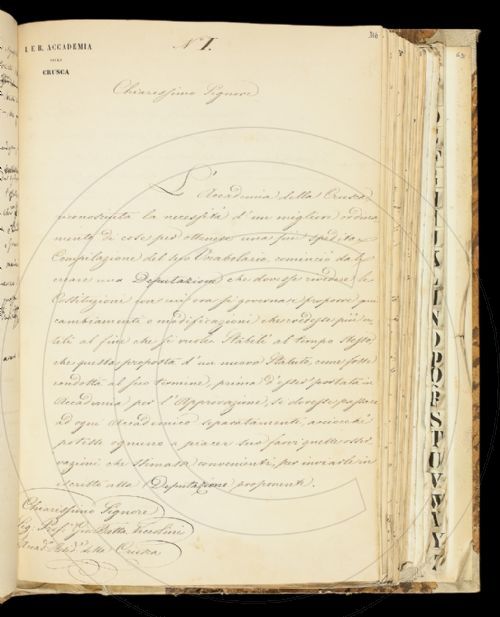 I. E R. ACCADEMIA
DELLA
CRUSCA
N.° I.
316
Chiarissimo Signore
L'Accademia della Crusca
riconosciuta la necessità d'un migliore ordina
mento di cose per ottenere una più spedita
Compilazione del suo Vocabolario, cominciò dal
creare una Deputazione che dovesse rivedere le
Costituzioni con cui ora si governa e proporre quei
cambiamenti o modificazioni che credesse più u-
tili al fine che si vuole. Stabilì al tempo stesso
che questa proposta d'un nuovo Statuto, come fosse
condotta al suo termine, prima d'esser portata in
Accademia per l'Approvazione, si dovesse passare
ad ogni Accademico separatamente, acciocchè
potesse ognuno a piacer suo farvi quelle osser
vazioni che stimasse convenienti, per inviarle in
iscritto alla Deputazione proponente.
Chiarissimo Signore
Sig. Prof. Gio. Batta
Accad. della Crusca
N
O
P
Q
R
S
T
U
V
W
X
Y
Z